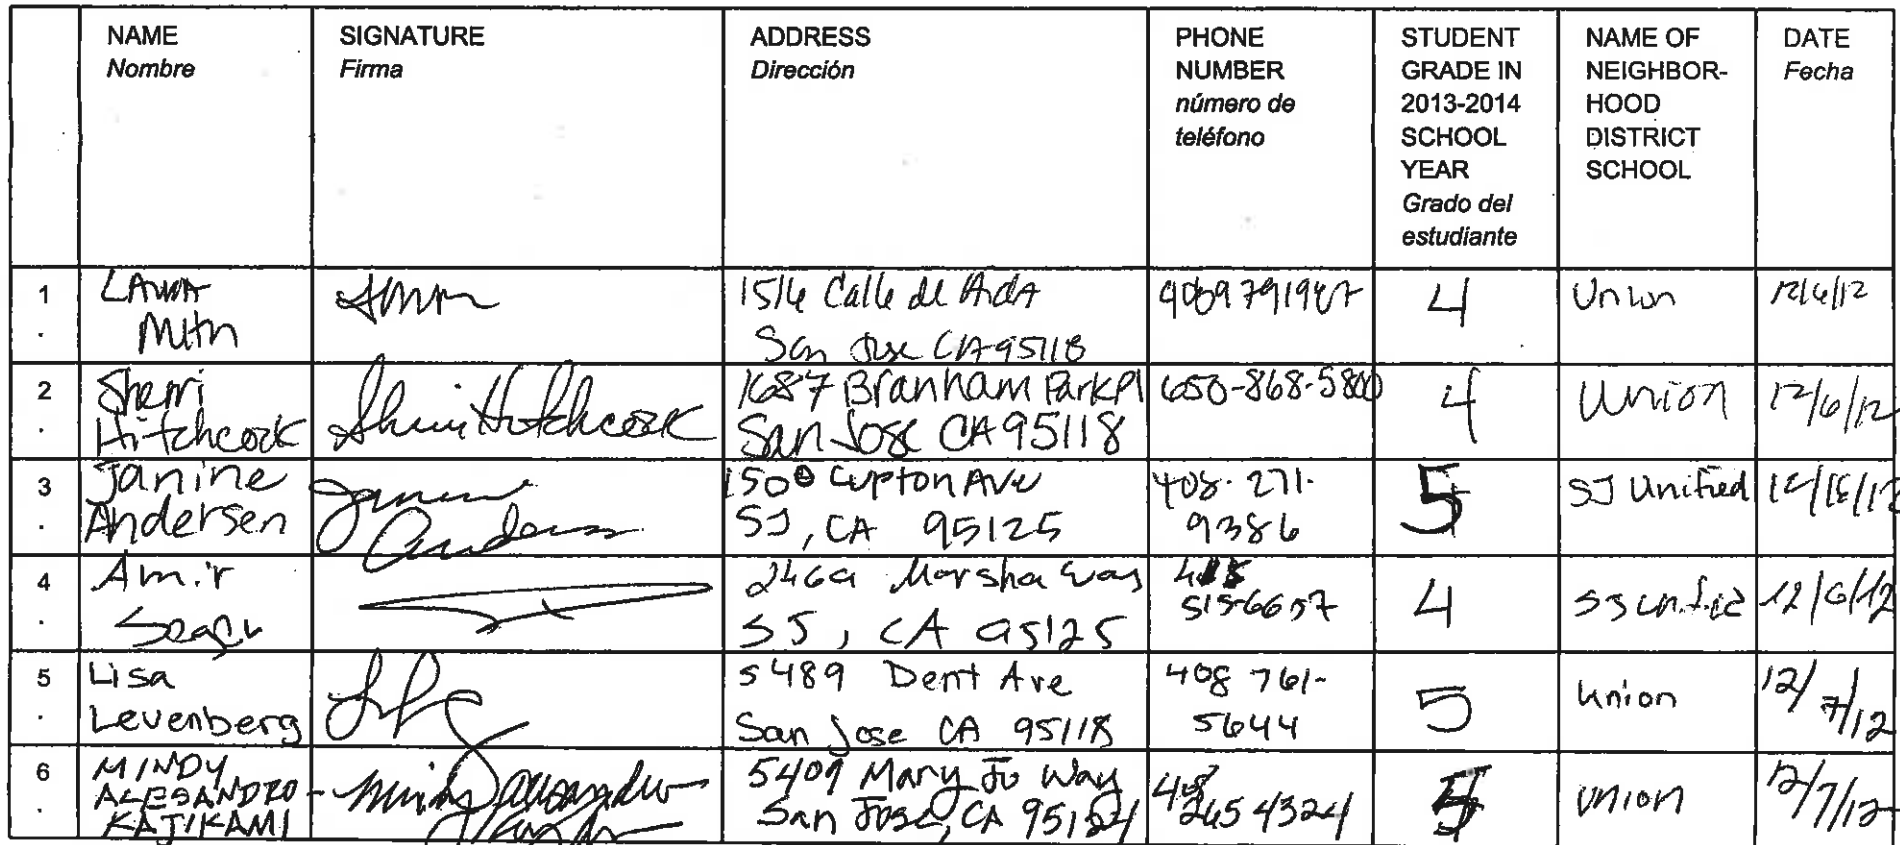 NAME
Nombre
SIGNATURE
Firma
ADDRESS
Dirección
PHONE
NUMBER
número de
teléfono
STUDENT
GRADE IN
2013-2014
SCHOOL
YEAR
Grado del
estudiante
NAME OF
NEIGHBOR-
HOOD
DISTRICT
SCHOOL
DATE
Fecha
1
.
Calle de
San Jose CA 95118
4
Union
12/6/12
2
.
Sherri
Hitchcock
Sherri Hitchcock
1687 Branham Park Pl
San Jose CA 95118
650-868-5800
4
Union
12/6/12
3
.
Janine
Andersen
Janine
Andersen
1500 Ave
SJ, CA 95125
408-271-
9386
5
SJ Unified
4
.
Amir
Marsha way
SJ, CA 95125
4
SJ unified
12/6/12
5
.
Lisa
Levenberg
5489 Dent Ave
San Jose CA 95118
408 761-
5644
5
Union
12/7/12
6
.
MINDY
ALESANDRO-
KAJIKAMI
5409 Mary Jo Way
San Jose, CA 95124
408
265 4324
5
Union
12/7/12